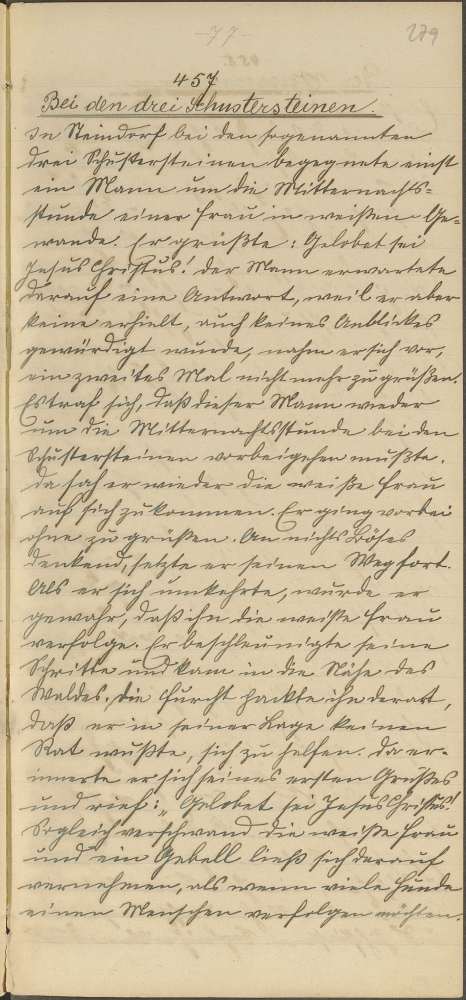 -77-
279
457
Bei den drei Schustersteinen.
In Steindorf bei den sogenannten
drei Schustersteinen begegnete einst
ein Mann um die Mitternachts=
stunde einer Frau in weißem Ge=
wande. Er grüßte: Gelobet sei
Jesus Christus! Der Mann erwartete
darauf eine Antwort, weil er aber
keine erhielt, auch keines Anblickes
gewürdigt wurde, nahm er sich vor,
ein zweites Mal nicht mehr zu grüßen.
Es traf sich, daß dieser Mann wieder
um die Mitternachtsstunde bei den
Schustersteinen vorbeigehen mußte.
Da sah er wieder die weiße Frau
auf sich zukommen. Er ging vorbei
ohne zu grüßen. An nichts Böses
denkend, setzte er seinen Weg fort.
Als er sich umkehrte, wurde er
gewahr, daß ihn die weiße Frau
verfolge. Er beschleunigte seine
Schritte und kam in die Nähe des
Waldes. Die Furcht packte ihn derart,
daß er in seiner Lage keinen
Rat wußte, sich zu helfen. Da er-
innerte er sich seines ersten Grußes
und rief: „Gelobet sei Jesus Christus!
Sogleich verschwand die weiße Frau
und ein Gebell ließ sich darauf
vernehmen, als wenn viele Hunde
einen Menschen verfolgen möchten.